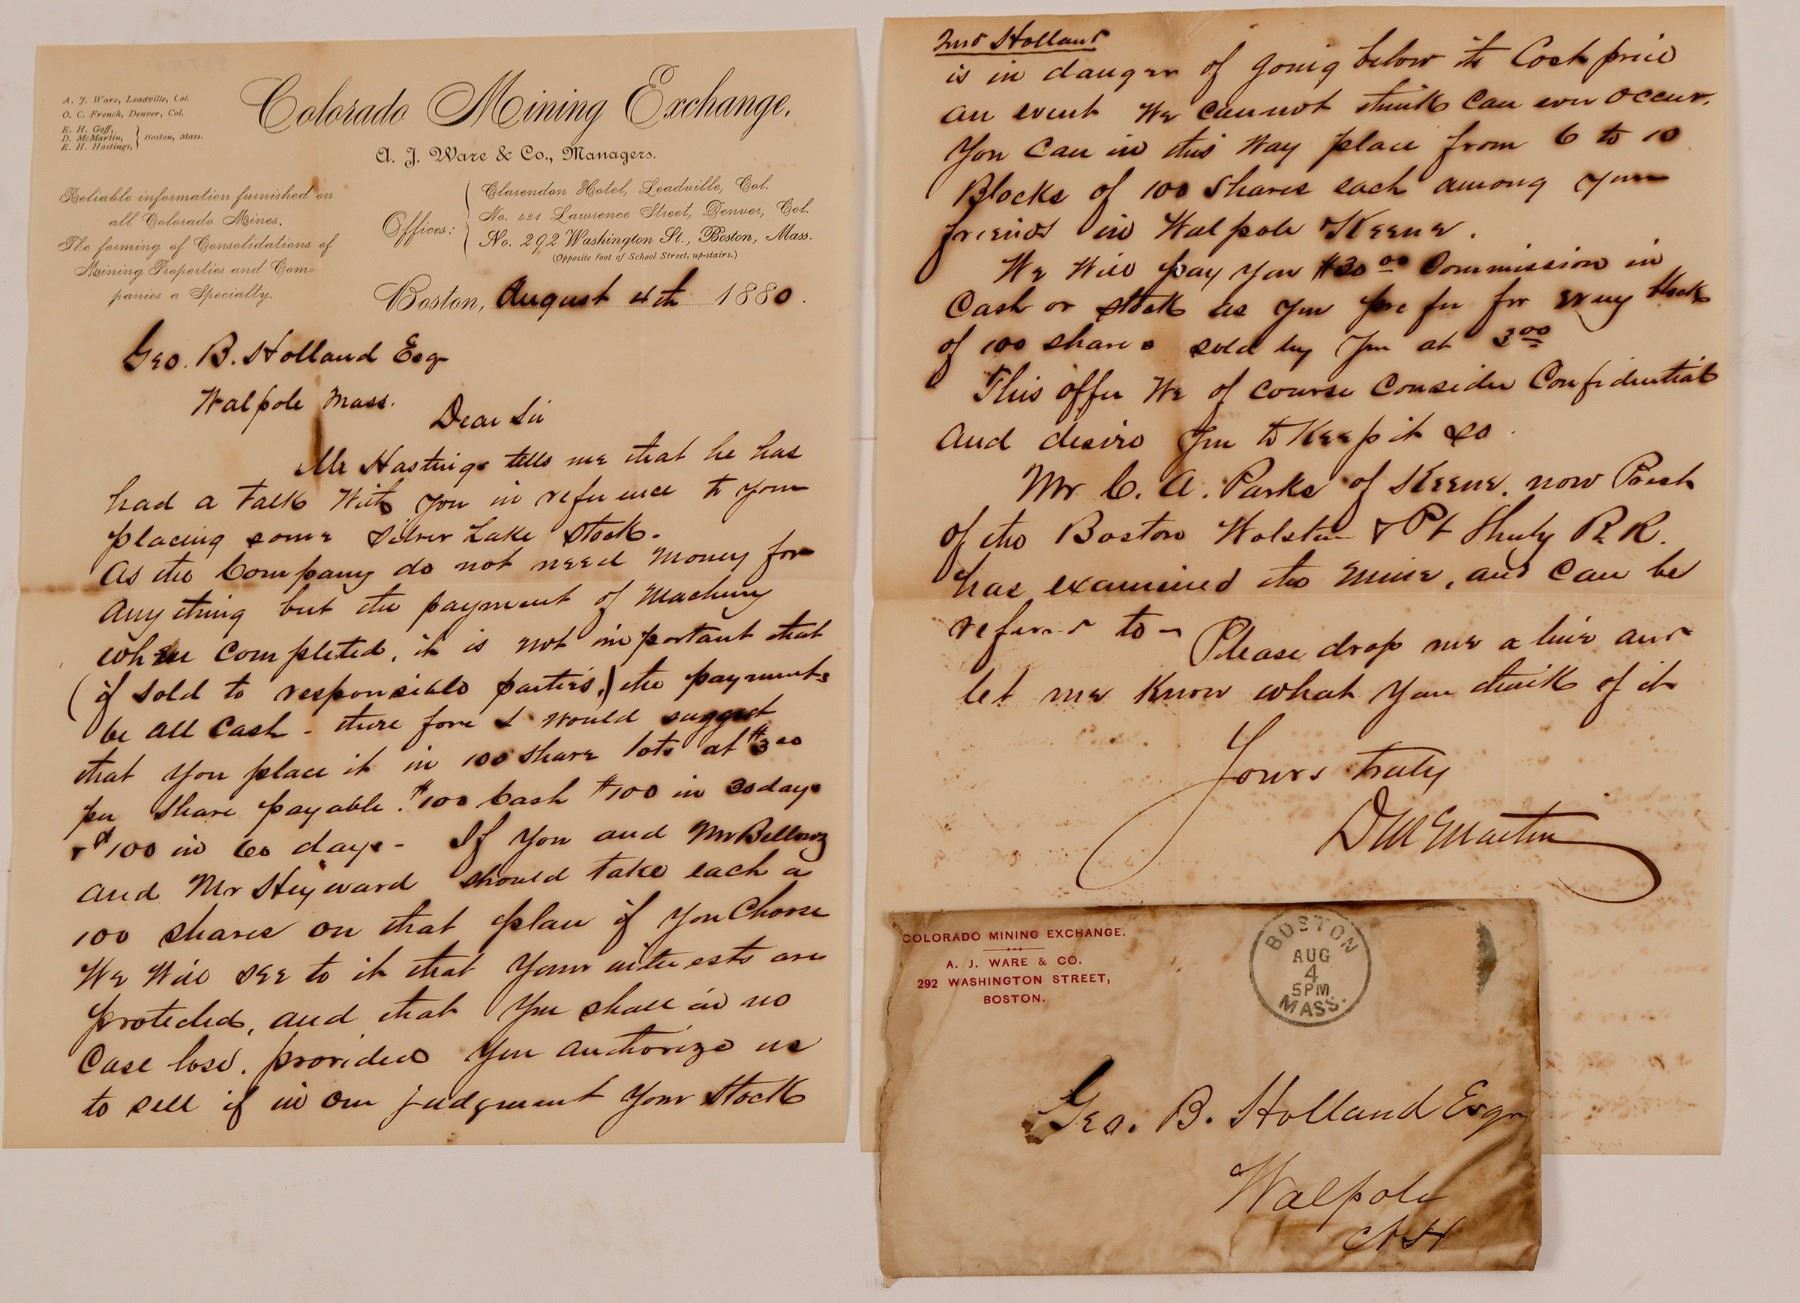 A. J. Ware, Leadville, Col.
O. C. French, Denver, Col.
E. H. Goff,
D. McMartin,
R. H. Hastings,
Boston, Mass.
Colorado Mining Exchange,
A. J. Ware & Co., Managers.
Reliable information furnished on
all Colorado Mines.
The forming of Consolidations of
Mining Properties and Com-
panies a Specialty.
Offices:
Clarendon Hotel, Leadville, Col.
No. 421 Lawrence Street, Denver, Col.
No. 292 Washington St., Boston, Mass.
(Opposite foot of School Street, up-stairs.)
Boston, August 4th 1880.
Geo. B. Holland Esq
Walpole Mass.
Dear Sir
Mr Hastings tells me that he has
had a talk with you in reference to your
placing some Silver Lake stock.
As the Company do not need money for
any thing but the payment of Machery
when completed, it is not important that
(if sold to responsible parties,) the payments
be all cash - there fore I would suggest
that you place it in 100 share lots at $3 00
per share payable. $100 Cash $100 in 30 days
& $100 in 60 days - If you and Mr Bellows
and Mr Heyward should take each a
100 shares on that plan if you Choose
We Will see to it that your interests are
protected, and that you shall in no
Case lose, provided you authorize us
to sell if in our judgment your stock
2nd Holland
is in danger of going below its Cost price
an event We cannot think can ever occur.
You can in this Way place from 6 to 10
Blocks of 100 shares each among your
friends in Walpole & Keene.
We Will pay you $20 00 Commission in
Cash or stock as you prefer for every block
of 100 shares sold by you at 3 00
This offer We of course Consider Confidential
and desire you to keep it so.
Mr C. A. Parks of Keene, now Prest
of the Boston & Pt R. R.
has examined the Mine, and can be
referred to - Please drop me a line and
let me know what you think of it
Yours truly
D McMartin
COLORADO MINING EXCHANGE.
A. J. WARE & CO.
292 WASHINGTON STREET,
BOSTON.
BOSTON
AUG
4
5PM
MASS.
Geo. B. Holland Esqr
Walpole
N H